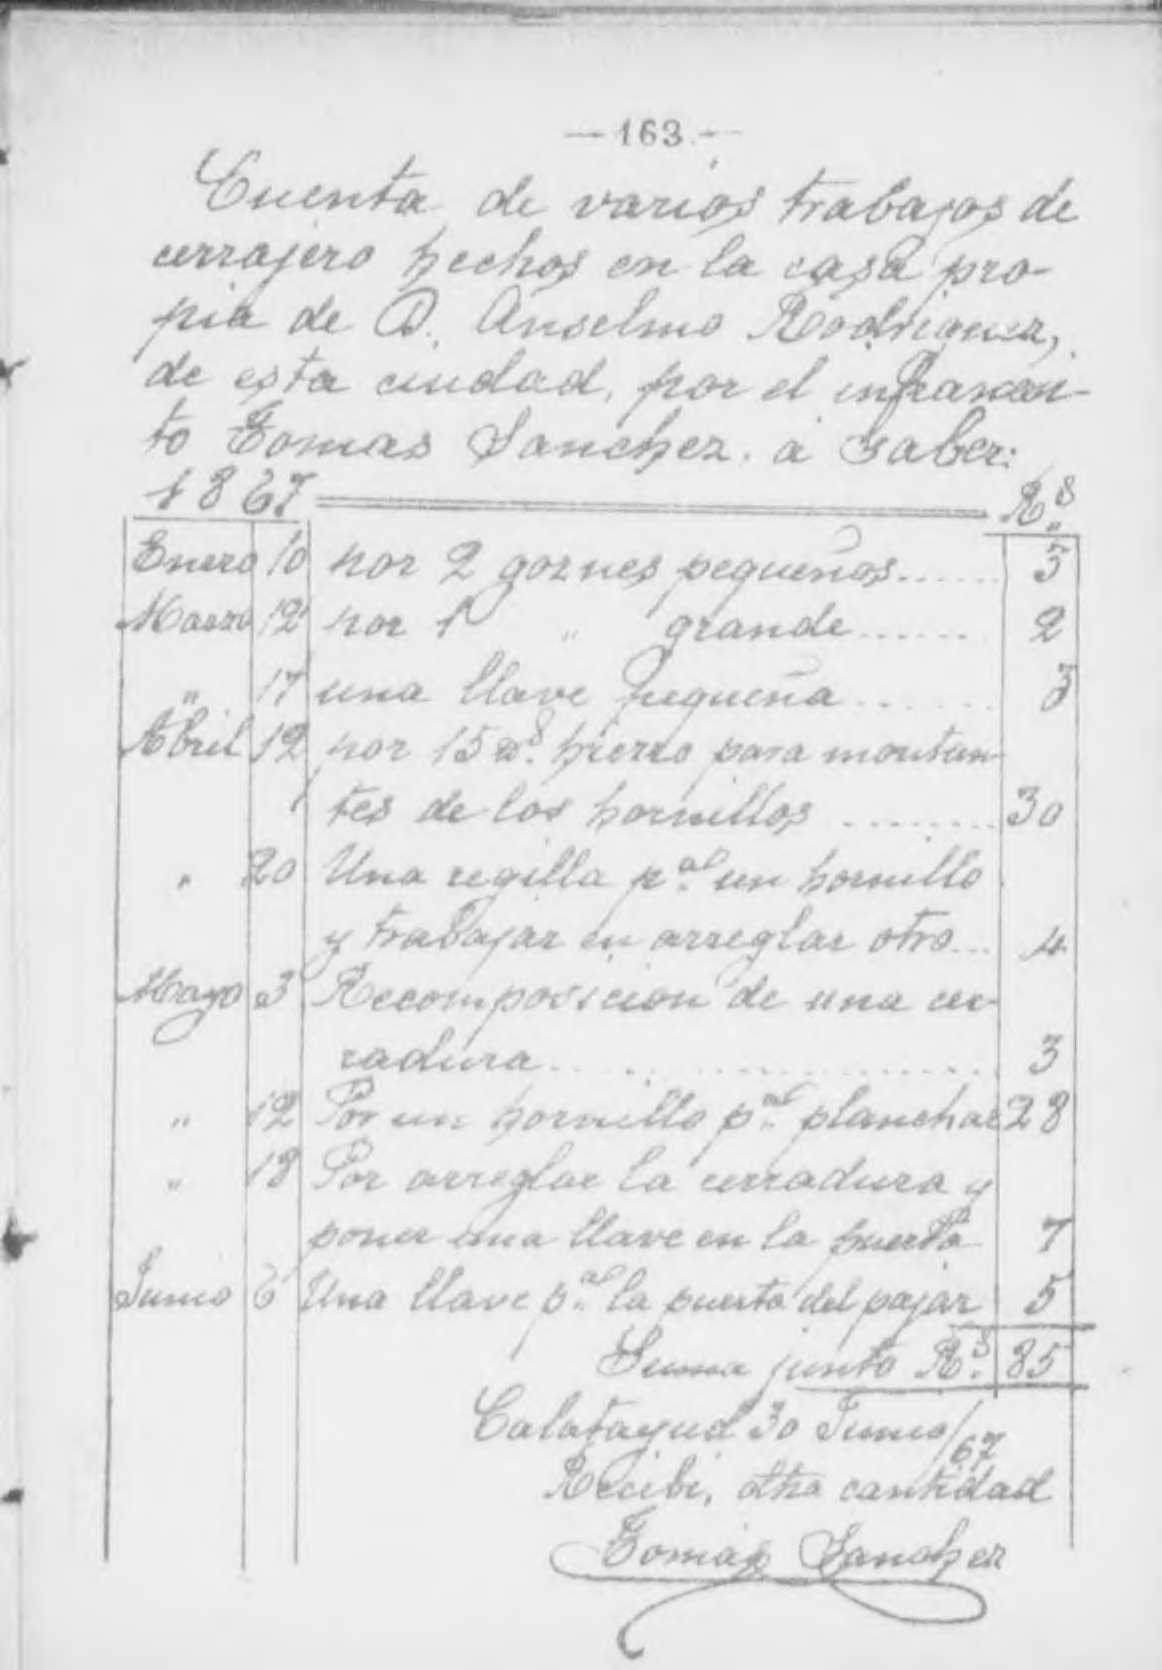 — 163. —
Cuenta de varios trabajos de
cerrajero hechos en la casa pro-
pia de D. Anselmo Rodriguez,
de esta ciudad, por el infrascri-
to Tomas Sanchez. á saber:
1867 R.s
Enero 10 por 2 goznes pequeños...... 5
Marzo 12 por 1 " grande...... 2
" 17 una llave pequeña...... 3
Abril 12 por 15 hierro para montan
tes de los hornillos ........ 30
" 20 Una regilla p.al un hornillo
y trabajar en arreglar otro... 4
Mayo 3 Recomposicion de una cer
radura................... 3
" 12 Por un hornillo p.al planchar 28
" 18 Por arreglar la cerradura y
poner una llave en la puerta 7
Junio 6 Una llave p.al la puerta del pajar 5
Suma junto R.s 85
Calatayud 30 Junio/67
Recibi, dha cantidad
Tomás Sanchez